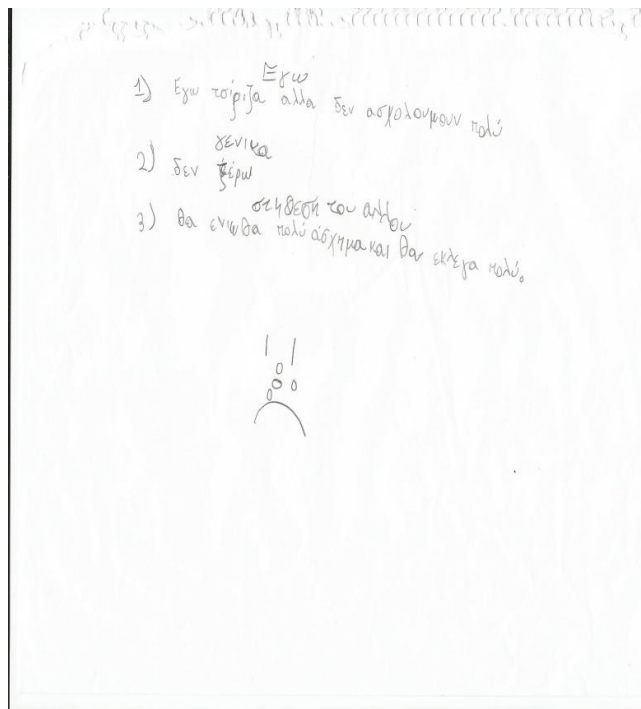 Εγω
1) Εγω τσίριζα αλλα δεν ασχολουμουν πολύ
γενικα
2) δεν ξέρω
στη θεση του αλλου
3) θα ενιωθα πολύ άσχημα και θα εκλεγα πολύ.